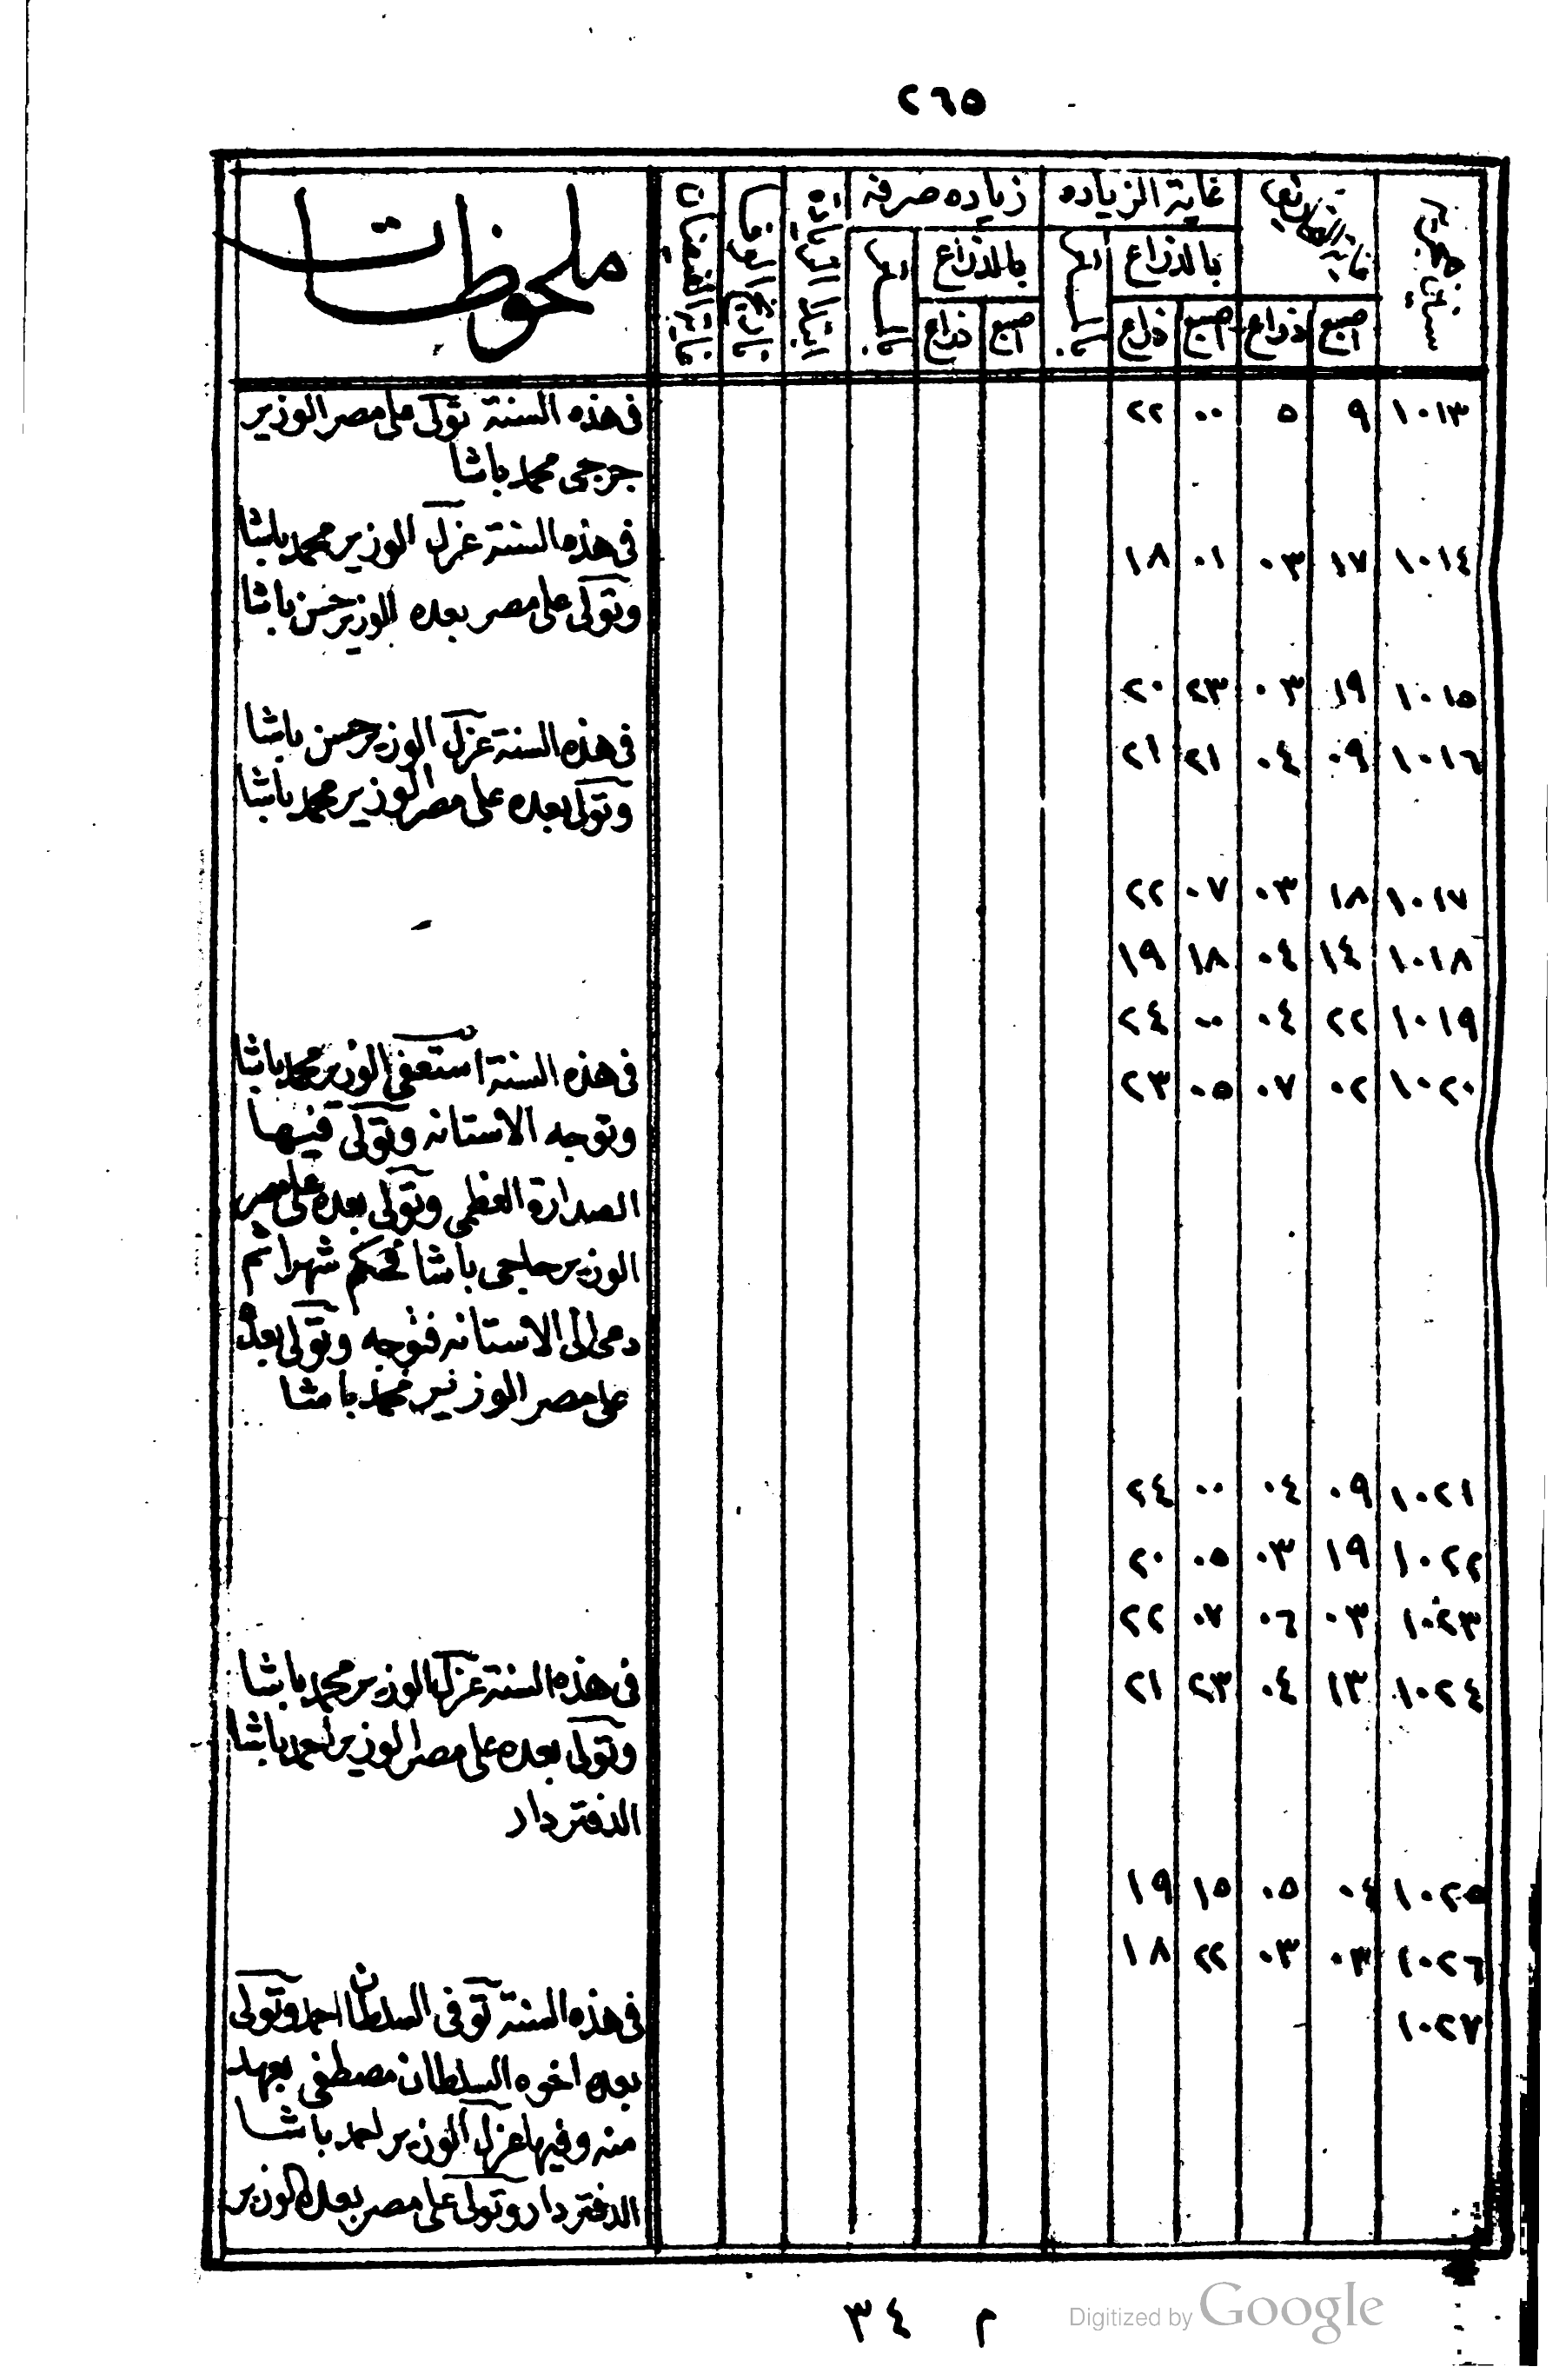 ٢٦٥
سنين هجريه
غاية الزياده
زياده صرفه
ملحوظات
بالذراع
بالذراع
اصبع ذراع اصبع ذراع اصبع ذراع
١٠١٣ ٩ ٥ ٠٠ ٢٢ فى هذه السنة تولى على مصر الوزير
جرجى محمد باشا
فى هذه السنة عزل الوزير محمد باشا
١٠١٤ ١٧ ٠٣ ٠١ ١٨
وتولى على مصر بعده الوزير حسن باشا
١٠١٥ ١٩ ٠٣ ٢٣ ٢٠
١٠١٦ ٠٩ ٠٤ ٢١ ٢١ فى هذه السنة عزل الوزير حسن باشا
وتولى بعده على مصر الوزير محمد باشا
١٠١٧ ١٨ ٠٣ ٠٧ ٢٢
١٠١٨ ١٤ ٠٤ ١٨ ١٩
١٠١٩ ٢٢ ٠٤ ٠٠ ٢٤
١٠٢٠ ٠٢ ٠٧ ٠٥ ٢٣ فى هذه السنة استعفى الوزير محمد باشا
وتوجه الاستانه وتولى فيها
الصدارة العظمى وتولى بعده على مصر
الوزير حلجى باشا فحكم شهرا ثم
دعى الى الاستانه فتوجه وتولى بعده
على مصر الوزير محمد باشا
١٠٢١ ٠٩ ٠٤ ٠٠ ٢٤
١٠٢٢ ١٩ ٠٣ ٠٥ ٢٠
١٠٢٣ ٠٣ ٠٦ ٠٧ ٢٢
١٠٢٤ ١٣ ٠٤ ٢٣ ٢١ فى هذه السنة عزل الوزير محمد باشا
وتولى بعده على مصر الوزير احمد باشا
الدفتردار
١٠٢٥ ٠٤ ٠٥ ١٥ ١٩
١٠٢٦ ٠٣ ٠٣ ٢٢ ١٨
١٠٢٧ فى هذه السنة توفى السلطان احمد وتولى
بعده اخوه السلطان مصطفى بعهد
منه وفيها عزل الوزير احمد باشا
الدفتردار وتولى على مصر بعده الوزير
م ٣٤
Digitized by Google